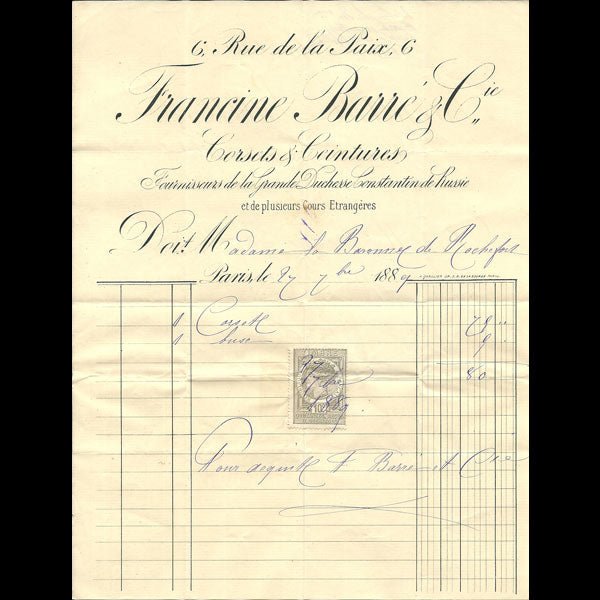 6, Rue de la Paix, 6
Francine Barré & Cie
Corsets & Ceintures
Fournisseurs de la Grande Duchesse Constantin de Russie
et de plusieurs Cours Etrangères
Doit Madame la Baronne de Rochefort
Paris, le 27 7bre 1889
1 Corset 78 "
1 busc
80
27
7bre
10c
1889
Pour acquit F Barré et Cie